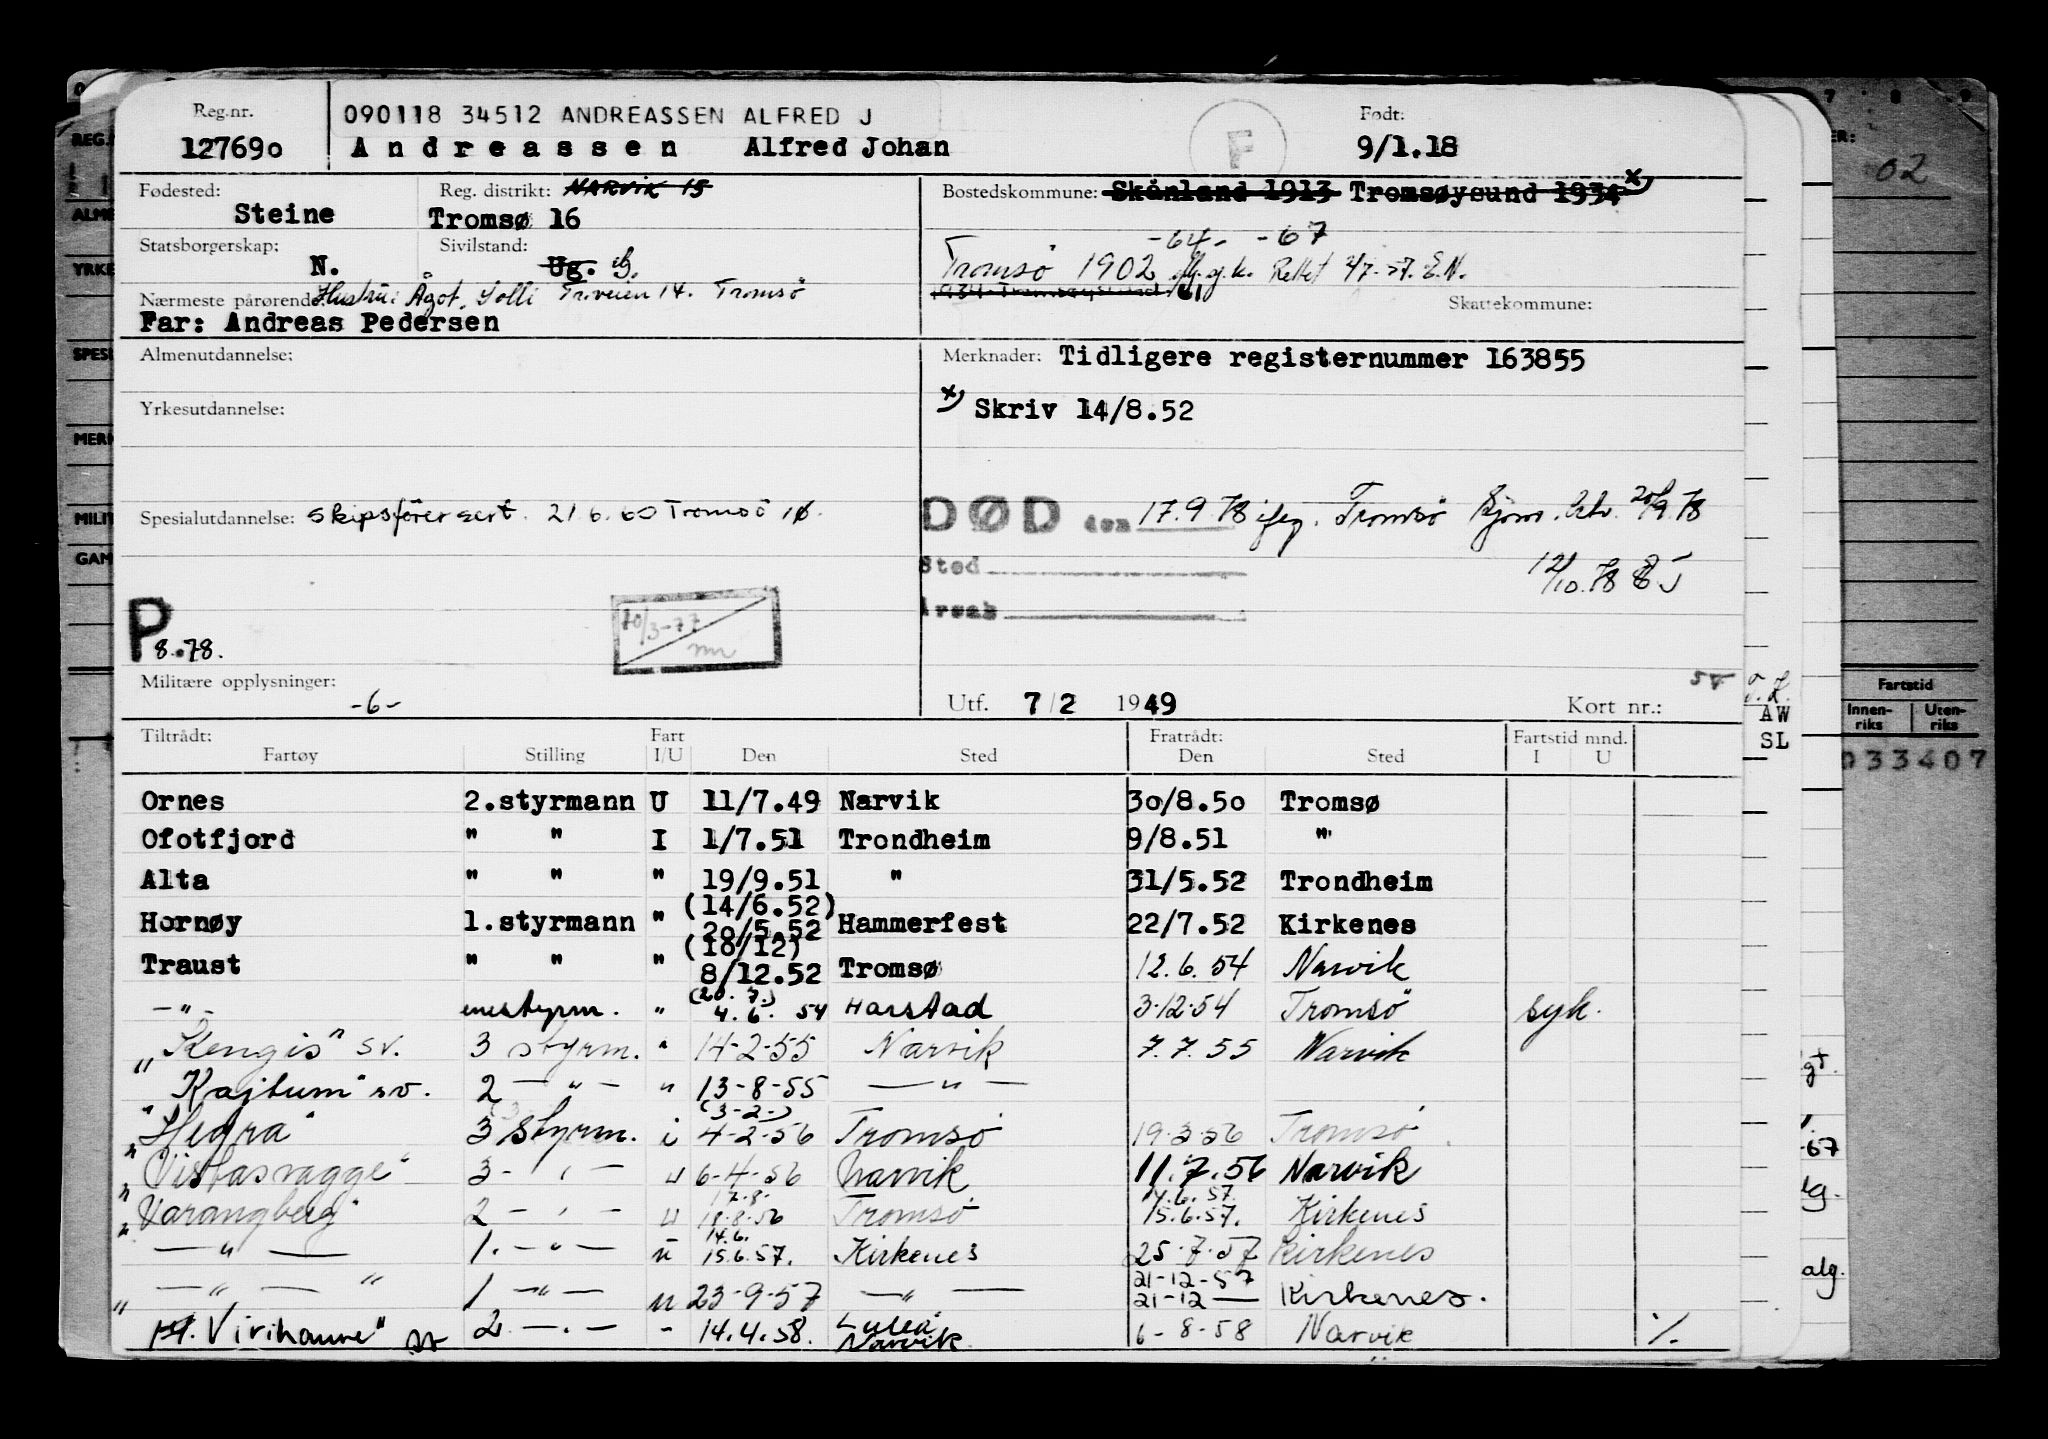 Reg.nr. 127690
090118 34512 ANDREASSEN ALFRED J
Andreassen Alfred Johan
F
Født: 9/1.18
Fødested: Steine
Reg. distrikt: NARVIK 15
Tromsø 16
Bostedskommune: Skånland 1913 Tromsøysund 1934 x)
-64- -67
Statsborgerskap: N.
Sivilstand: Ug. g.
Tromsø 1902 Rettet E.N.
61
Nærmeste pårørende: Hustru: Ågot Solli Tromsø
Far: Andreas Pedersen
Skattekommune:
Almenutdannelse:
Merknader: Tidligere registernummer 163855
x) Skriv 14/8.52
Yrkesutdannelse:
Spesialutdannelse: Skipsfører sert. 21.6.60 Tromsø 16.
DØD den 17.9.78 Tromsø 20/9.78
Sted
Årsak
12/10.78
P 8.78.
Militære opplysninger: -6-
Utf. 7/2 1949
Kort nr.:
Tiltrådt:
Fartøy Stilling Fart I/U Den Sted
Fratrådt:
Den Sted Fartstid mnd. I U
Ornes 2.styrmann U 11/7.49 Narvik 30/8.50 Tromsø
Ofotfjord " " I 1/7.51 Trondheim 9/8.51 "
Alta " " " 19/9.51 " 31/5.52 Trondheim
Hornøy 1.styrmann " (14/6.52) 20/5.52 Hammerfest 22/7.52 Kirkenes
Traust " " " (10/12) 8/12.52 Tromsø 12.6.54 Narvik
-"- enestyrm. " (20.7.) 4.6. 54 Harstad 3-12-54 Tromsø syk.
"Kengis" sv. 3 styrm. " 14-2-55 Narvik 7.7.55 Narvik
"Kajtum" sv. 2 -"- " 13-8-55 -"-
"Hegra" 3 styrm. i (3-2-) 4-2-56 Tromsø 19-3-56 Tromsø
"Vistasvagge" 3 - " - u 6-4-56 Narvik 11.7.56 Narvik
"Varangberg" 2 - " - u 17.8. 18-8-56 Tromsø 14.6.57. 15.6.57. Kirkenes
-"- 1. -"- u 14.6. 15.6.57. Kirkenes 25-7-57 Kirkenes
-"- 1 -"- u 23-9-57 -"- 21-12-57 21-12 — Kirkenes.
"Virihaure" sv 2 -"- - 14.4.58. Luleå Narvik 6-8-58 Narvik ./.
AW
SL
02
Fartstid
Innen-riks Uten-riks
033407